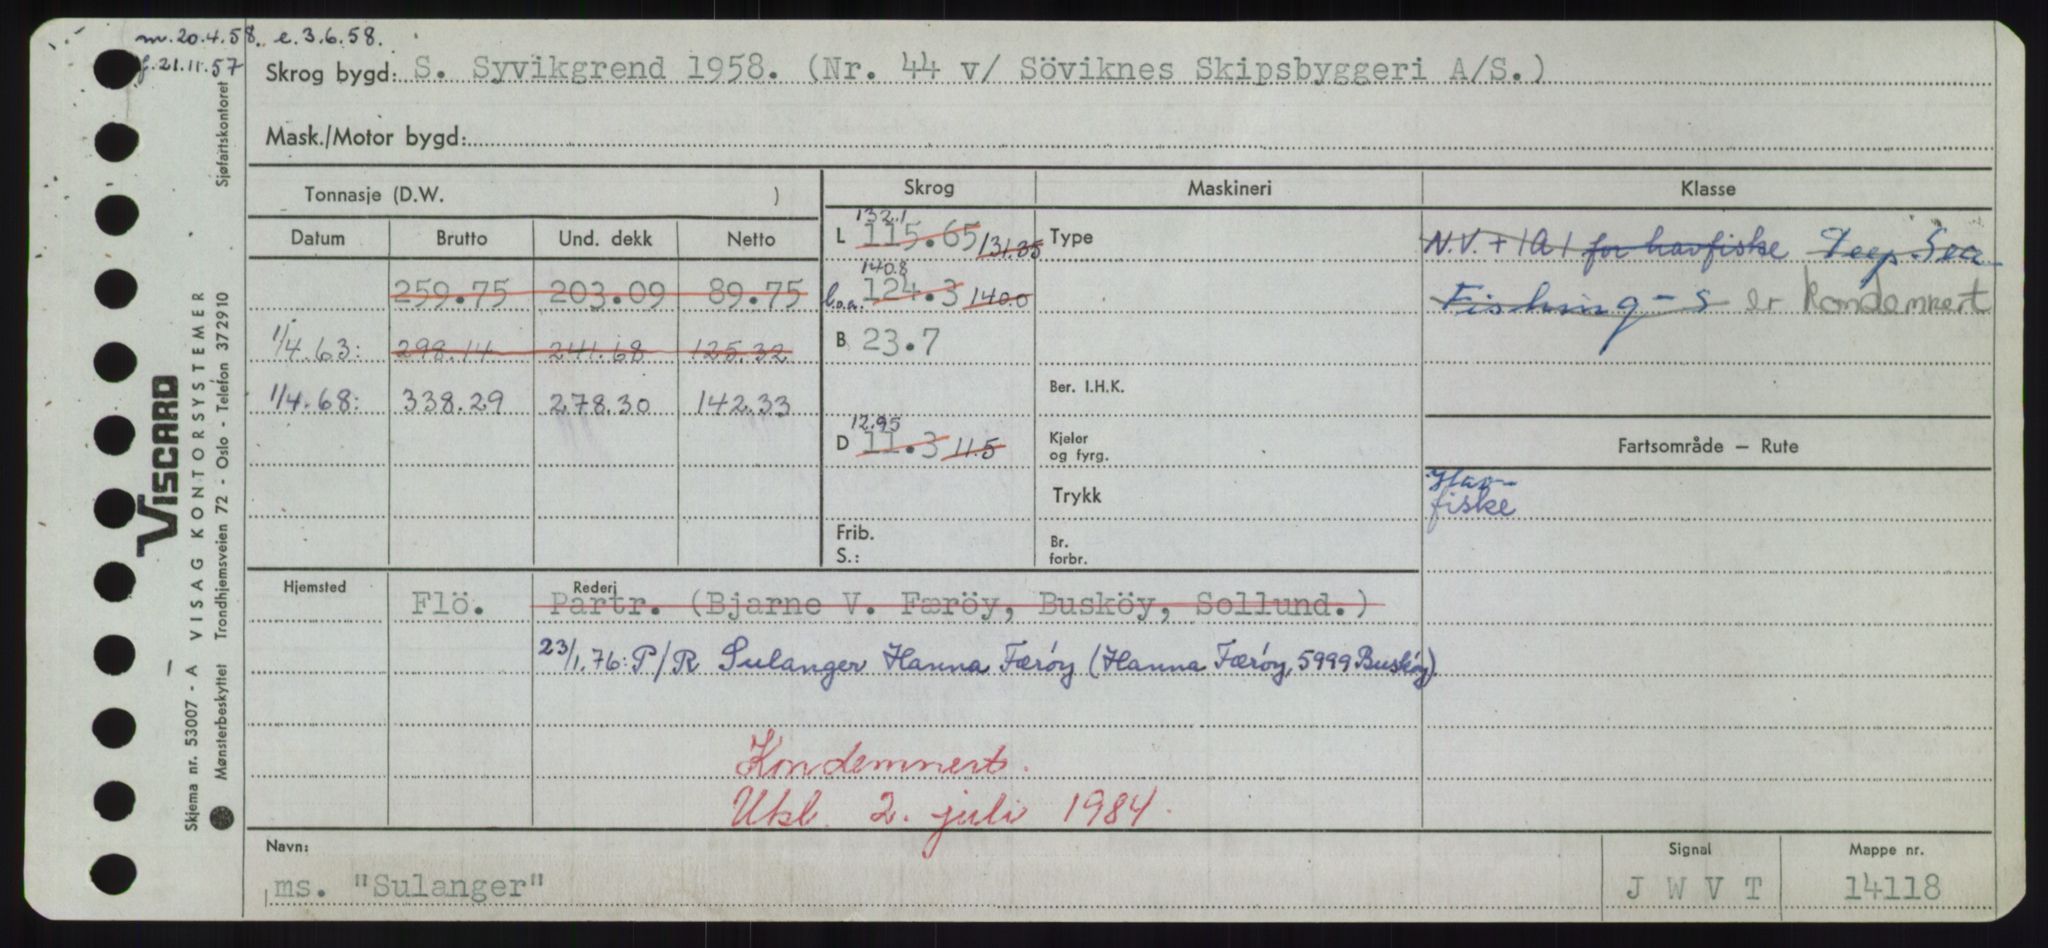 m. 20.4.58. e. 3.6.58.
f. 21.11.57
Skrog bygd: S. Syvikgrend 1958. (Nr. 44 v/ Söviknes Skipsbyggeri A/S.)
Mask./Motor bygd:
Tonnasje (D.W. )
Skrog Maskineri Klasse
Datum Brutto Und. dekk Netto
132.1
L 115.65 131.35 Type
N.V. + 1A1 for havfiske Deep Sea
259.75 203.09 89.75
140.8
l.o.a. 124.3 140.0
Fishing - S er kondemnert
1/4.63: 298.14 241.68 125.32
B 23.7
1/4.68: 338.29 278.30 142.33
Ber. I.H.K.
12.95
D 11.3 11.5
Kjeler
og fyrg.
Fartsområde — Rute
Trykk
Hav-
fiske
Frib.
S.:
Br.
forbr.
Hjemsted Rederi
Flö. Partr. (Bjarne V. Færöy, Busköy, Sollund.)
23/1.76: P/R Sulanger Hanna Færöy (Hanna Færöy, 5999 Busköy)
Kondemnert.
Utsl. 2. juli 1984.
Navn: Signal Mappe nr.
ms. "Sulanger" J W V T 14118
VISCARD
Skjema nr. 53007 - A VISAG KONTORSYSTEMER
Mønsterbeskyttet Trondhjemsveien 72 - Oslo - Telefon 372910 Sjøfartskontoret